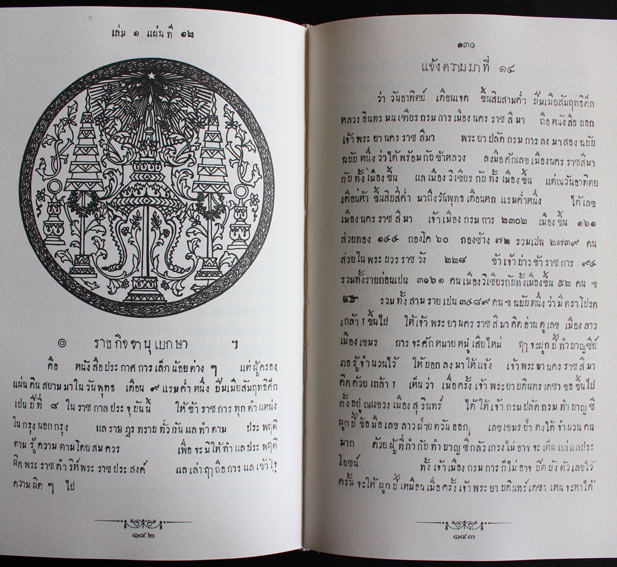 เล่ม ๑ แผ่นที่ ๑๒
๏ ราชกิจจานุเบกษา ฯ
คือ หนังสือประกาศการเล็กน้อยต่าง ๆ แต่ผู้ครอง
แผ่นดินสยามมาในวันพุทธ เดือน ๙ แรมค่ำหนึ่ง ปีมเมียสัมฤทธิศก
เปนปีที่ ๘ ในราชกาลประจุบันนี้ ให้ข้าราชการทุกตำแหน่ง
ในกรุงนอกกรุง แลราษฎรทายทั่วกันแลทำตาม ประพฤติ
ตามรู้ความตามโดยสมควร เพื่อจะมิให้ทำแลประพฤติ
ผิดพระราชดำริห์พระราชประสงค์ แลเล่าฦๅถือการแลเข้าใจ
ความผิด ๆ ไป
๑๔๒
๑๓๐
แจ้งความมาที่ ๑๔
ว่า วันอาทิตย์ เดือนเจด ขึ้นสิบสามค่ำ ปีมเมียสัมฤทธิศก
หลวงอินทรมนเฑียรกรมการเมืองนครราชสีมา ถือหนังสือบอก
เจ้าพระยานครราชสีมา พระยาปลัดกรมการลงมาสองฉบับ
ฉบับหนึ่งว่าได้พร้อมกับข้าหลวง ลงมือสักเลขเมืองนครราชสีมา
กับทั้งเมืองขึ้น แลเมืองวิเชียรกับทั้งเมืองขึ้น แต่ณวันอาทิตย
เดือนห้าขึ้นสิบสี่ค่ำ มาถึงวันพุทธเดือนหกแรมค่ำหนึ่ง ได้เลข
เมืองนครราชสีมา เจ้าเมืองกรมการ ๒๓๐๒ เมืองขึ้น ๑๖๑
ส่วยทอง ๑๔๔ กองโค ๖๐ กองช้าง ๗๒ รวมเปน ๒๗๓๙ คน
ส่วยในพระบวรราชวัง ๒๒๘ ข้าเจ้าบ่าวข้าราชการ ๙๔
รวมทั้งรายก่อนเปน ๓๓๖๑ คนเมืองวิเชียรกับทั้งเมืองขึ้น ๕๒ คน
รวมทั้งสามรายเปน ๓๔๘๙ คน ฉบับหนึ่งว่ามีตราโปรด
เกล้า ฯ ขึ้นไป ให้เจ้าพระยานครราชสีมาคิดอ่านดูเลข เมืองลาว
เมืองเขมร การจะศักหมายหมู่เสียใหม่ ฤๅจะผูกปี้ทำบาญชีย์
พอรู้จำนวนไว้ ให้บอกลงมาให้แจ้ง เจ้าพระยานครราชสีมา
คิดด้วยเกล้า ฯ เห็นว่า เมื่อครั้งเจ้าพระยาบดินทรเดชาออกขึ้นไป
ตั้งอยู่ณแขวงเมืองสุรินทร์ ได้ให้เจ้ากรมปลัดกรมทำบาญชี
ผูกปี้ข้อมือเลขลาวฝ่ายตวันออก เลขเขมรป่าดงได้จำนวนคน
มาก ด้วยผู้ที่กำกับทำบาญชีกลัวเกรงไม่อาจจะเห็นแก่ผลประ
โยชน์ ทั้งเจ้าเมืองกรมการก็ไม่อาจปิดบังตัวเลขไว้
ครั้นจะให้ผูกปี้เหมือนเมื่อครั้งเจ้าพระยาบดินทร์เดชา เหนจะหาได้
๑๔๓